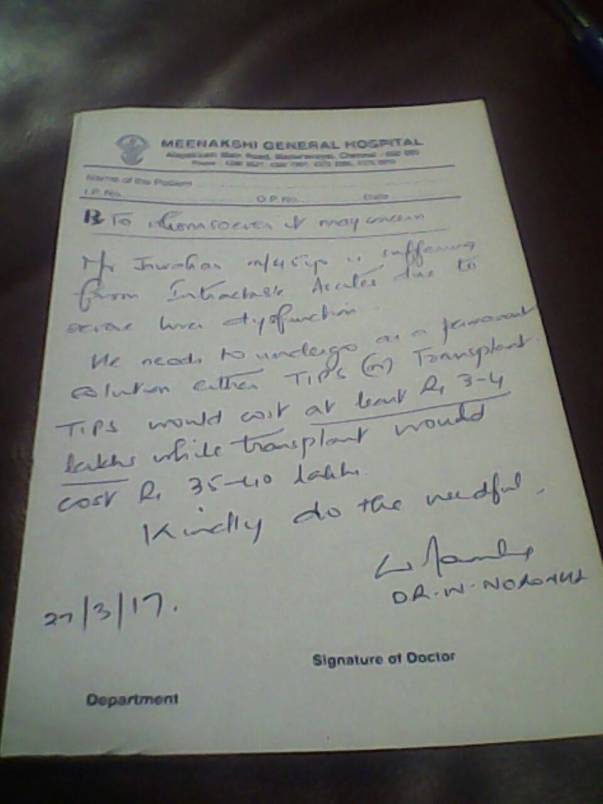 MEENAKSHI GENERAL HOSPITAL
Main Road, Chennai
Name of the Patient
I.P. No. O.P. No. Date
To whomsoever it may concern
Mr m/45yrs is suffering
from Intractable Ascites due to
severe liver dysfunction.
He needs to undergo as a permanent
solution either TIPS (or) Transplant.
TIPS would cost at least Rs 3-4
lakhs while transplant would
cost Rs 35-40 lakhs.
Kindly do the needful.
27/3/17.
DR. W.
Signature of Doctor
Department